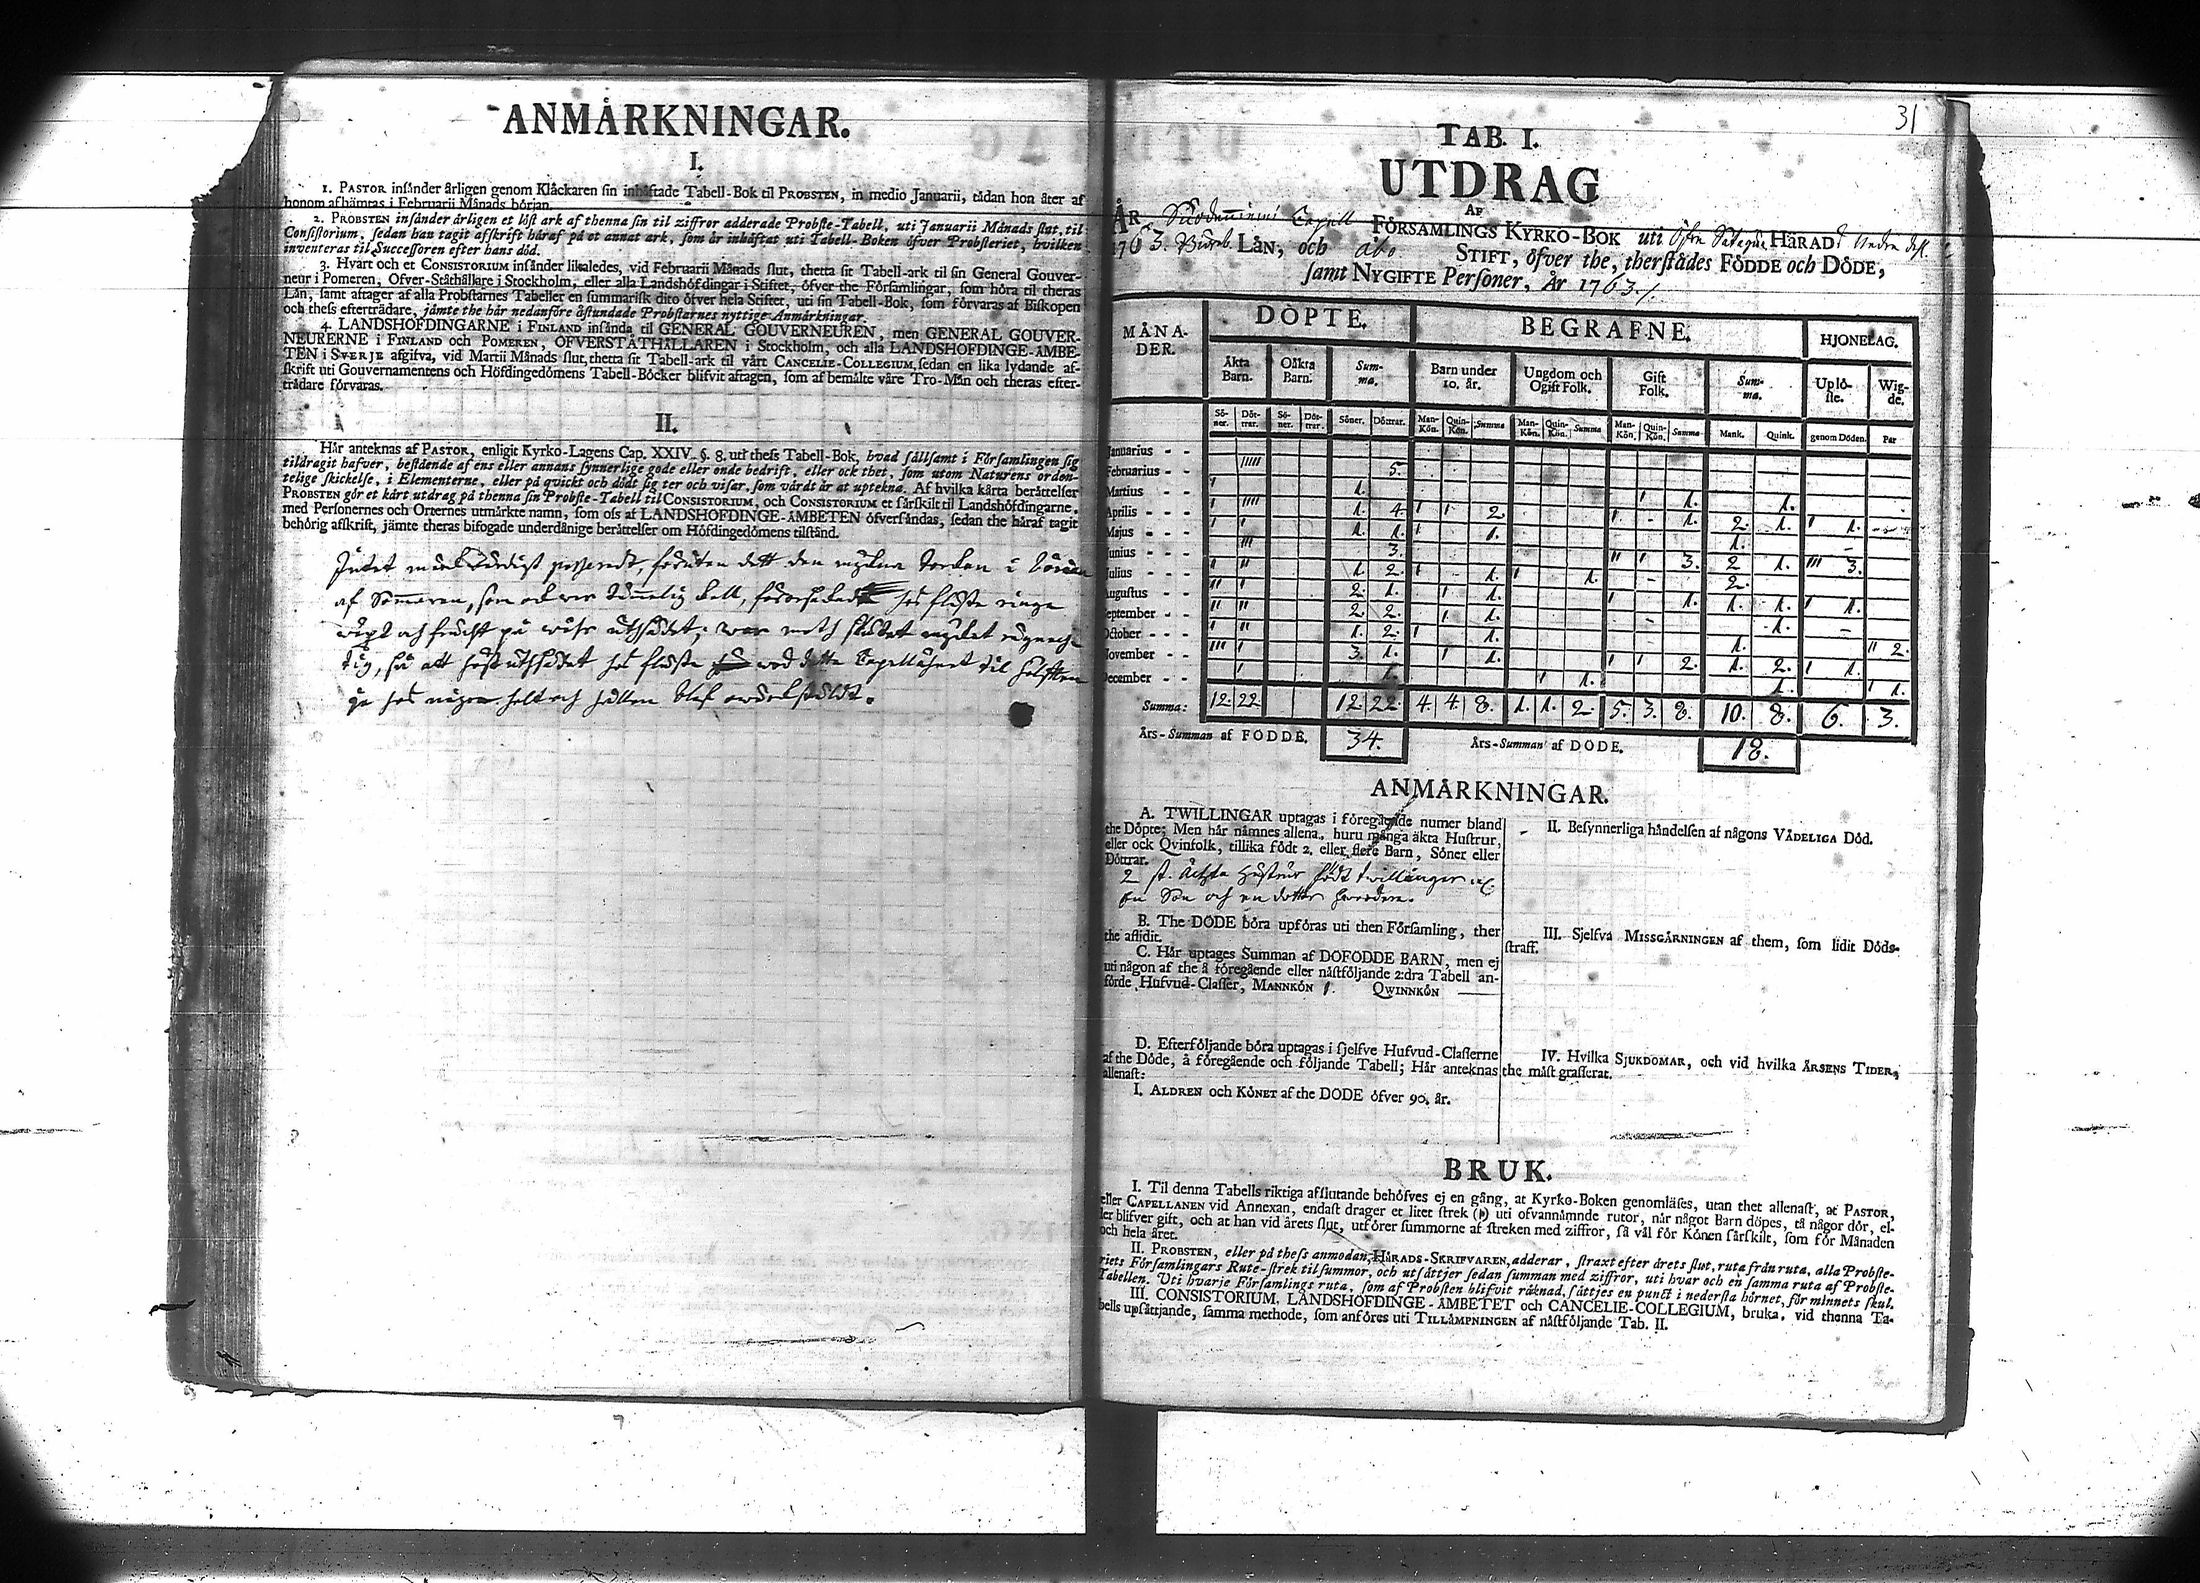 ANMÄRKNINGAR.
I.
1. PASTOR insänder årligen genom Klåckaren sin inhäftade Tabell-Bok til PROBSTEN, in medio Januarii, tädan hon åter af
honom afhämtas i Februarii Månads början.
2. PROBSTEN insänder årligen et löst ark af thenna sin til ziffror adderade Probste-Tabell, uti Januarii Månads slut, til
Consistorium, sedan han tagit afskrift häraf på et annat ark, som är inhäftat uti Tabell-Boken öfver Probsteriet, hvilken
inventeras til Successoren efter hans död.
3. Hvart och et CONSISTORIUM insänder likaledes, vid Februarii Månads slut, thetta sit Tabell-ark til sin General Gouver-
neur i Pomeren, Öfver-Ståthållare i Stockholm, eller alla Landshöfdingar i Stiftet, öfver the Församlingar, som höra til theras
Län, samt aftager af alla Probstarnes Tabeller en summarisk dito öfver hela Stiftet, uti sin Tabell-Bok, som förvaras af Biskopen
och thess efterträdare, jämte the här nedanföre åstundade Probstarnes nyttige Anmärkningar.
4. LANDSHÖFDINGARNE i FINLAND insända til GENERAL GOUVERNEUREN, men GENERAL GOUVER-
NEURERNE i FINLAND och POMEREN, ÖFVERSTÅTHÅLLAREN i Stockholm, och alla LANDSHÖFDINGE-ÄMBE-
TEN i SVERJE afgifva, vid Martii Månads slut, thetta sit Tabell-ark til vårt CANCELIE-COLLEGIUM, sedan en lika lydande af-
skrift uti Gouvernamentens och Höfdingedömens Tabell-Böcker blifvit aftagen, som af bemälte våre Tro-Män och theras efter-
trädare förvaras.
II.
Här anteknas af PASTOR, enligit Kyrko-Lagens Cap. XXIV. §. 8. uti thess Tabell-Bok, hvad sällsamt i Församlingen sig
tildragit hafver, bestående af ens eller annans synnerlige gode eller onde bedrift, eller ock thet, som utom Naturens orden-
telige skickelse, i Elementerne, eller på qvickt och dödt sig ter och visar, som värdt är at uptekna. Af hvilka korta berättelser
PROBSTEN gör et kårt utdrag på thenna sin Probste-Tabell til CONSISTORIUM, och CONSISTORIUM et särskilt til Landshöfdingarne,
med Personernes och Orternes utmärkte namn, som oss af LANDSHÖFDINGE-ÄMBETEN öfversändas, sedan the häraf tagit
behörig afskrift, jämte theras bifogade underdånige berättelser om Höfdingedömens tilstånd.
Intet märkvärdigt passerat, förutan dett den mykna torkan i början
af Sommaren, som ock war kall, förorsakade hos fläste ringa
och frucht på utsädet; war moth slutet mycket
tig, så att höst utsädet hos fläste wed detta Capellähret til helften
ja hos någon helt och hållen blef
31
TAB. I.
UTDRAG
AF
ÅR Capell FÖRSAMLINGS KYRKO-BOK uti Öfre Satagu HÄRAD
1763. LÄN, och Åbo STIFT, öfver the, therstädes FÖDDE och DÖDE,
samt NYGIFTE Personer, År 1763.
MÅNA-
DER.
DÖPTE. BEGRAFNE. HJONELAG.
Äkta Barn. Oäkta Barn. Sum-ma. Barn under 10. år. Ungdom och Ogift Folk. Gift Folk. Sum-ma. Uplö-ste. Wig-de.
Sö-ner. Döt-trar. Sö-ner. Döt-trar. Söner. Döttrar. Man-Kön. Quin-Kön. Summa Man-Kön. Quin-Kön. Summa Man-Kön. Quin-Kön. Summa Mank. Quink. genom Döden. Par
Januarius - - 5.
Februarius - - 1. 1. 1.
Martius - - 1. 4. 2. 1. 2. 1. 1.
Aprilis - - 1. 1. 1. 1.
Majus - - 3. 3. 2 1. 3.
Junius - - 1. 2. 1. 1. 2.
Julius - - 2. 1. 1. 1. 1. 1. 1.
Augustus - - 2. 2. 1. 1.
September - - 1. 2. 1. 1. 2.
October - - 3. 1. 1. 2. 1. 2. 1.
November - - 1. 1. 1. 1.
December - -
Summa: 12. 22 12. 22. 4. 4. 8. 1. 1. 2. 5. 3. 8. 10. 8. 6. 3.
Års-Summan af FÖDDE. 34. Års-Summan af DÖDE. 18.
ANMÄRKNINGAR.
A. TWILLINGAR uptagas i föregående numer bland
the Döpte; Men här nämnes allena, huru många äkta Hustrur,
eller ock Qvinfolk, tillika födt 2. eller flere Barn, Söner eller
Döttrar.
2 st. Äckta Hustrur födt twillingar
en Son och en dotter hwardera.
B. The DÖDE böra upföras uti then Församling, ther
the aflidit.
C. Här uptages Summan af DÖFÖDDE BARN, men ej
uti någon af the å föregående eller nästföljande 2:dra Tabell an-
förde Hufvud-Classer, MANNKÖN 1. QWINNKÖN
D. Efterföljande böra uptagas i sjelfve Hufvud-Classerne
af the Döde, å föregående och följande Tabell; Här anteknas
allenast:
I. ÅLDREN och KÖNET af the DÖDE öfver 90. år.
II. Besynnerliga händelsen af någons VÅDELIGA Död.
III. Sjelfva MISSGÄRNINGEN af them, som lidit Döds-
straff.
IV. Hvilka SJUKDOMAR, och vid hvilka ÅRSENS TIDER,
the mäst grasserat.
BRUK.
I. Til denna Tabells riktiga afslutande behöfves ej en gång, at Kyrko-Boken genomläses, utan thet allenast, at PASTOR,
eller CAPELLANEN vid Annexan, endast drager et litet strek (ı) uti ofvannämnde rutor, när något Barn döpes, tå någor dör, el-
ler blifver gift, och at han vid årets slut, utförer summorne af streken med ziffror, så väl för Könen särskilt, som för Månaden
och hela året.
II. PROBSTEN, eller på thess anmodan, HÄRADS-SKRIFVAREN, adderar, straxt efter årets slut, ruta från ruta, alla Probste-
riets Församlingars Rute-strek til summor, och utsättjer sedan summan med ziffror, uti hvar och en samma ruta af Probste-
Tabellen. Uti hvarje Församlings ruta, som af Probsten blifvit räknad, sättjes en punct i nedersta hörnet, för minnets skul.
III. CONSISTORIUM, LANDSHÖFDINGE-ÄMBETET och CANCELIE-COLLEGIUM, bruka, vid thenna Ta-
bells upsättjande, samma methode, som anföres uti TILLÄMPNINGEN af nästföljande Tab. II.